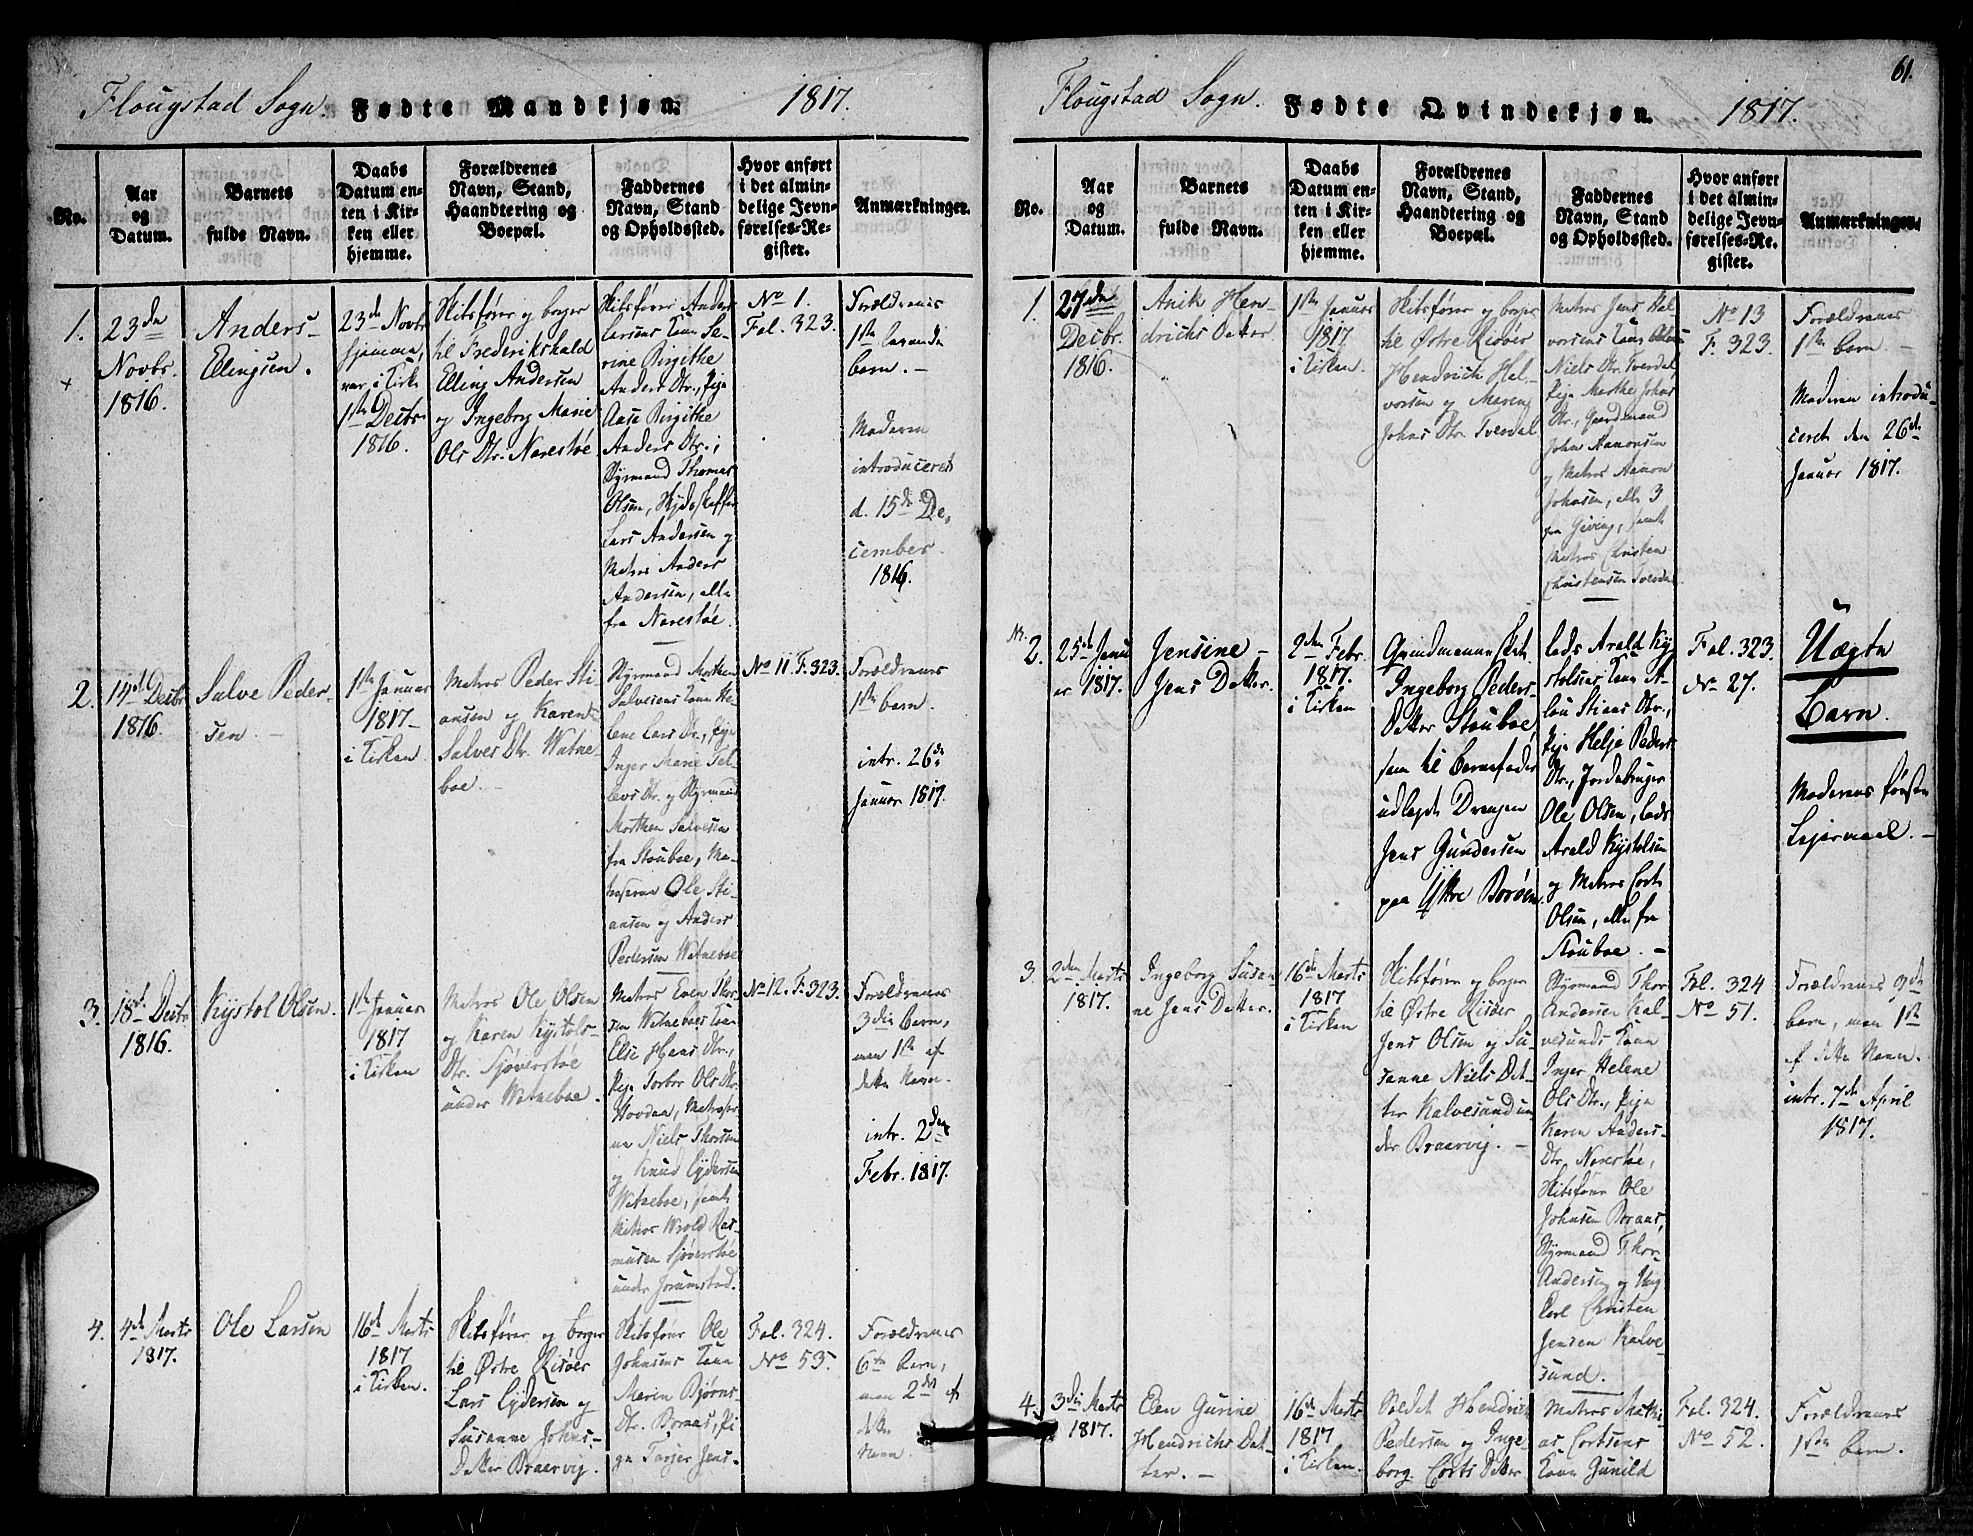 Flougstad Sogn. Fødte Mandkjøn. 1817.
No.
Aar
og
Datum.
Barnets
fulde Navn.
Daabs
Datum en-
ten i Kir-
ken eller
hjemme.
Forældrenes
Navn, Stand,
Haandtering og
Boepæl.
Faddernes
Navn, Stand
og Opholdssted.
Hvor anført
i det almin-
delige Jevn-
førelses-Re-
gister.
Anmærkninger.
1.
23de
Novbr.
1816.
Anders
Ellingsen.
23de Novbr
hjemme,
var i Kirk
1ste Decbr
1816.
Skibsfører og borger
til Frederikshald
Elling Andersen
og Ingeborg Marie
Ols Dtr. Narestøe
Skibsfører Anders
Larsens Kone Se-
rine Birgithe
Anders Dtr., Pige
Aase Birgithe
Anders Dtr.;
Styrmand Thomas
Olsen,
Lars Andersen og
Matros Anders
Andersen, alle
fra Narestøe.
No 1.
Fol. 323.
Forældrenes
1ste levende
barn. -
Moderen
introduceret
d. 15de De,
cember.
1816.
2.
14de Decbr
1816.
Salve Peder-
sen. -
1ste Januar
1817 -
i Kirken
Matros Peder Sti-
ansen og Karen
Salves Dtr. Watne
boe. -
Styrmand Morthen
Salvesens Kone He-
lene Lars Dtr., Pige
Inger Marie Tel-
levs Dtr. og Styrmand
Morthen Salvesen
fra Stouboe, Ma-
troserne Ole Sti-
ansen og Anders
Pedersen Watneboe
No 11. F. 323.
Forældrenes
1ste barn.
intr. 26de
Januar 1817.
3.
18de Decbr
1816.
Kystol Olsen.
1ste Januar
1817
i Kirken
Matros Ole Olsen
og Karen Kystols-
Dtr. Sjøverstøe
under Watneboe.
Matros Even Thor-
sen Watneboes Kone
Else Hans Dtr.,
Pige Torbor Ols Dtr.
Hovdan, Matroser-
ne Niels Thorsen
og Knud Eydersen
Watneboe, samt
Matros Wrold Ras-
musen Sjøverstøe
under Jorumstad.
No 12. F. 323.
Forældrenes
3die Barn,
men 1ste af
dette Navn.
intr. 2den
Febr. 1817.
4.
4de Marts
1817.
Ole Larsen
16de Marts
1817
i Kirken.
Skibsfører og borger
til Østre Risøer
Lars Eydersen og
Susanne Johns-
Datter Braarvig.
Skibsfører Ole
Johnsens Kone
Maren Bjørns
Dtr. Boraas, Pi
ge Tarjer Jens-
Fol. 324.
No 53.
Forældrenes
6te barn,
men 2det af
dette
Navn
61.
Flougstad Sogn. Fødte Qvindekjøn. 1817.
No.
Aar
og
Datum.
Barnets
fulde Navn.
Daabs
Datum en-
ten i Kir-
ken eller
hjemme.
Forældrenes
Navn, Stand,
Haandtering og
Boepæl.
Faddernes
Navn, Stand
og Opholdssted.
Hvor anført
i det almin-
delige Jevn-
førelses-Re-
gister.
Anmærkninger.
1.
27de
Decbr.
1816.
Anik Hen-
drichs Datter
1ste Januar
1817
i Kirken.
Skibsfører og borger
til Østre Risøer
Hendrich Hal-
vorsen og Maren
Johns Dtr. Tverdal
Matros Jens Hal
vorsens Kone
Niels Dtr. Tverdal,
Pige Marthe Johns
Dtr., Gaardmand
John Aanonsen
og Matros Aanon
Johnsen, alle 3
fra Geving, samt
Matros Christen
Christensen Tverdal
No 13
F. 323.
Forældrenes
1ste barn. -
Moderen introdu-
ceret den 26de
Januar 1817.
Nr. 2.
25de Janu
ar 1817.
Jensine -
Jens Datter.
2den Febr.
1817.
i Kirken
Ingeborg Peders-
Datter Stouboe,
som til Barnefader
udlagde Drengen
Jens Gundersen
paa Ytre Borøen.
Lods Arald Ky-
stolsens Kone A-
lou Stians Dtr.,
Pige Helje Peders
Dtr., Jordebruger
Ole Olsen, Lods
Arald Kystolsen
og Matros Cort
Olsen, alle fra
Stouboe. -
Fol. 323.
No 27.
Uægte
Barn.
Moderens første
Lejermaal. -
3.
2den Marts
1817.
Ingeborg Susan
ne Jens Datter.
16de Marts
1817
i Kirken
Skibsfører og borger
til Østre Risøer
Jens Olsen og Su-
sanne Niels Dat-
ter Kalvesund un
der Braarvig. -
Styrmand Thor-
Andersen Kal-
vesunds Kone
Inger Helene
Ols Dtr., Pige
Karen Anders-
Dtr. Narestøe,
Skibsfører Ole
Johnsen Boraas,
Styrmand Thor-
Andersen og Ung
Karl Christen
Jensen Kalve-
sund.
Fol. 324
No 51.
Forældrenes 9de
barn, men 1ste
af dette Navn.
intr. 7de April
1817.
4.
3die Marts
1817.
Elen Gurine
Hendrichs Dat-
ter. -
16de Marts
1817
i Kirken.
Soldat Hendrich
Pedersen og Inge
borg Corts Datter
Matros Mathi
as Cortsens
Kone Gunild
Fol. 324.
No 52.
Forældrenes
1ste barn.